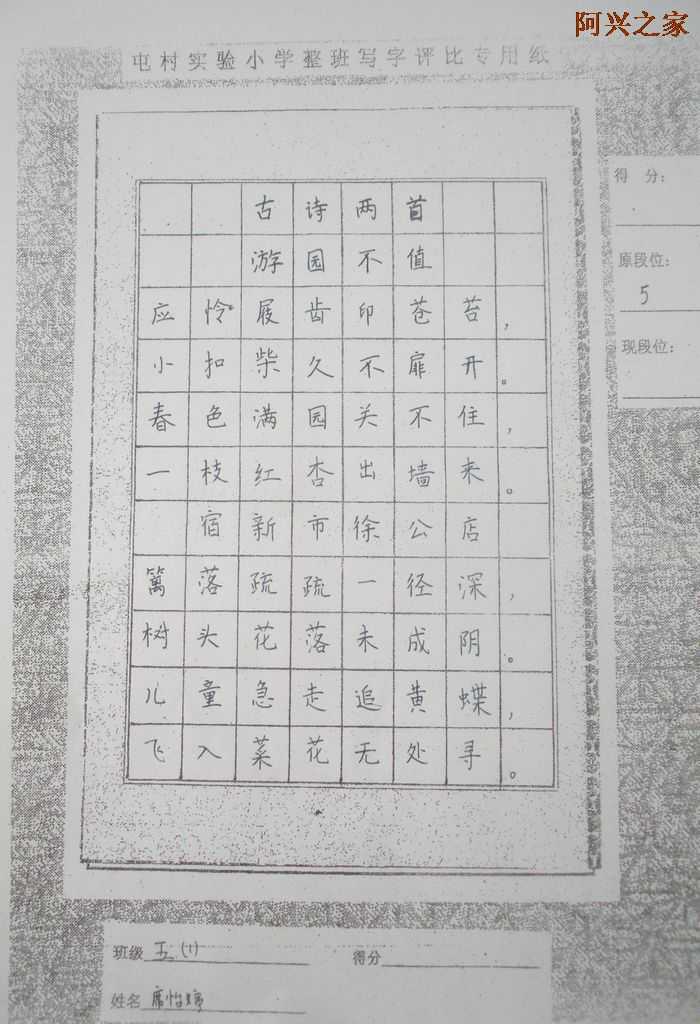 阿兴之家
屯村实验小学整班写字评比专用纸
得 分：
原段位：
5
现段位：
古诗两首
游园不值
应怜屐齿印苍苔，
小扣柴久不扉开。
春色满园关不住，
一枝红杏出墙来。
宿新市徐公店
篱落疏疏一径深，
树头花落未成阴。
儿童急走追黄蝶，
飞入菜花无处寻。
班级 五（1） 得分
姓名 席怡婷